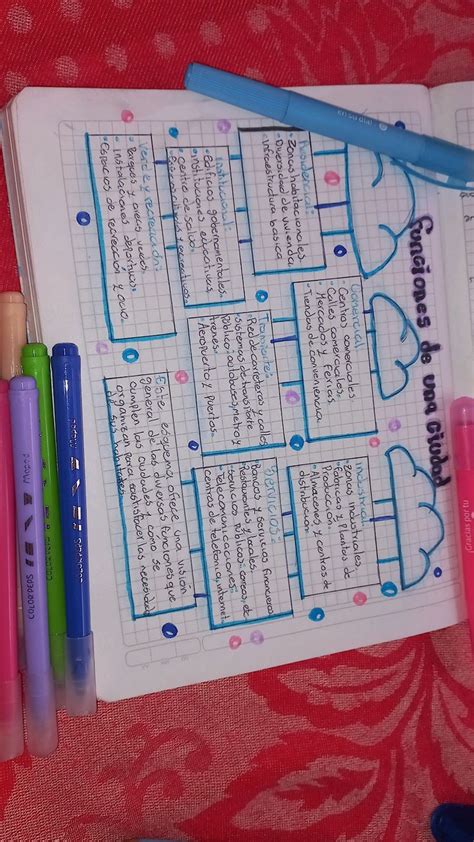 Funciones de una ciudad
Residencial:
• Zonas habitacionales
• Diversidad de vivienda
• Infraestructura basica
Comercial
• Centros comerciales
• Calles comerciales.
• Mercados y Ferias.
• Tiendas de conveniencia.
Industrial
• zonas industriales.
• Fábricas y Plantas de
Producción.
• Almacenes y centros de
distribución.
Institucional:
• edificios gobernamentales.
• instituciones educativas
• centro de salud.
Transporte:
Red de carreteras y calles
sistemas de transporte
Público: autobuses, metro y
trenes.
• Aeropuerto y puertos.
Servicios:
Bancos y servicios financieros
Restaurantes y locales.
servicios públicos: correos, etc
• Telecomunicaciones:
centros de telefonia, internet.
Verde y recreación:
• Parques y areas verdes.
• Instalaciones deportivas.
• Espacios de recreación y ocio.
Este esquema ofrece una visión
general de las diversas funciones que
cumplen las ciudades y como se
organizan para satisfacer las necesidades
de sus habitantes.